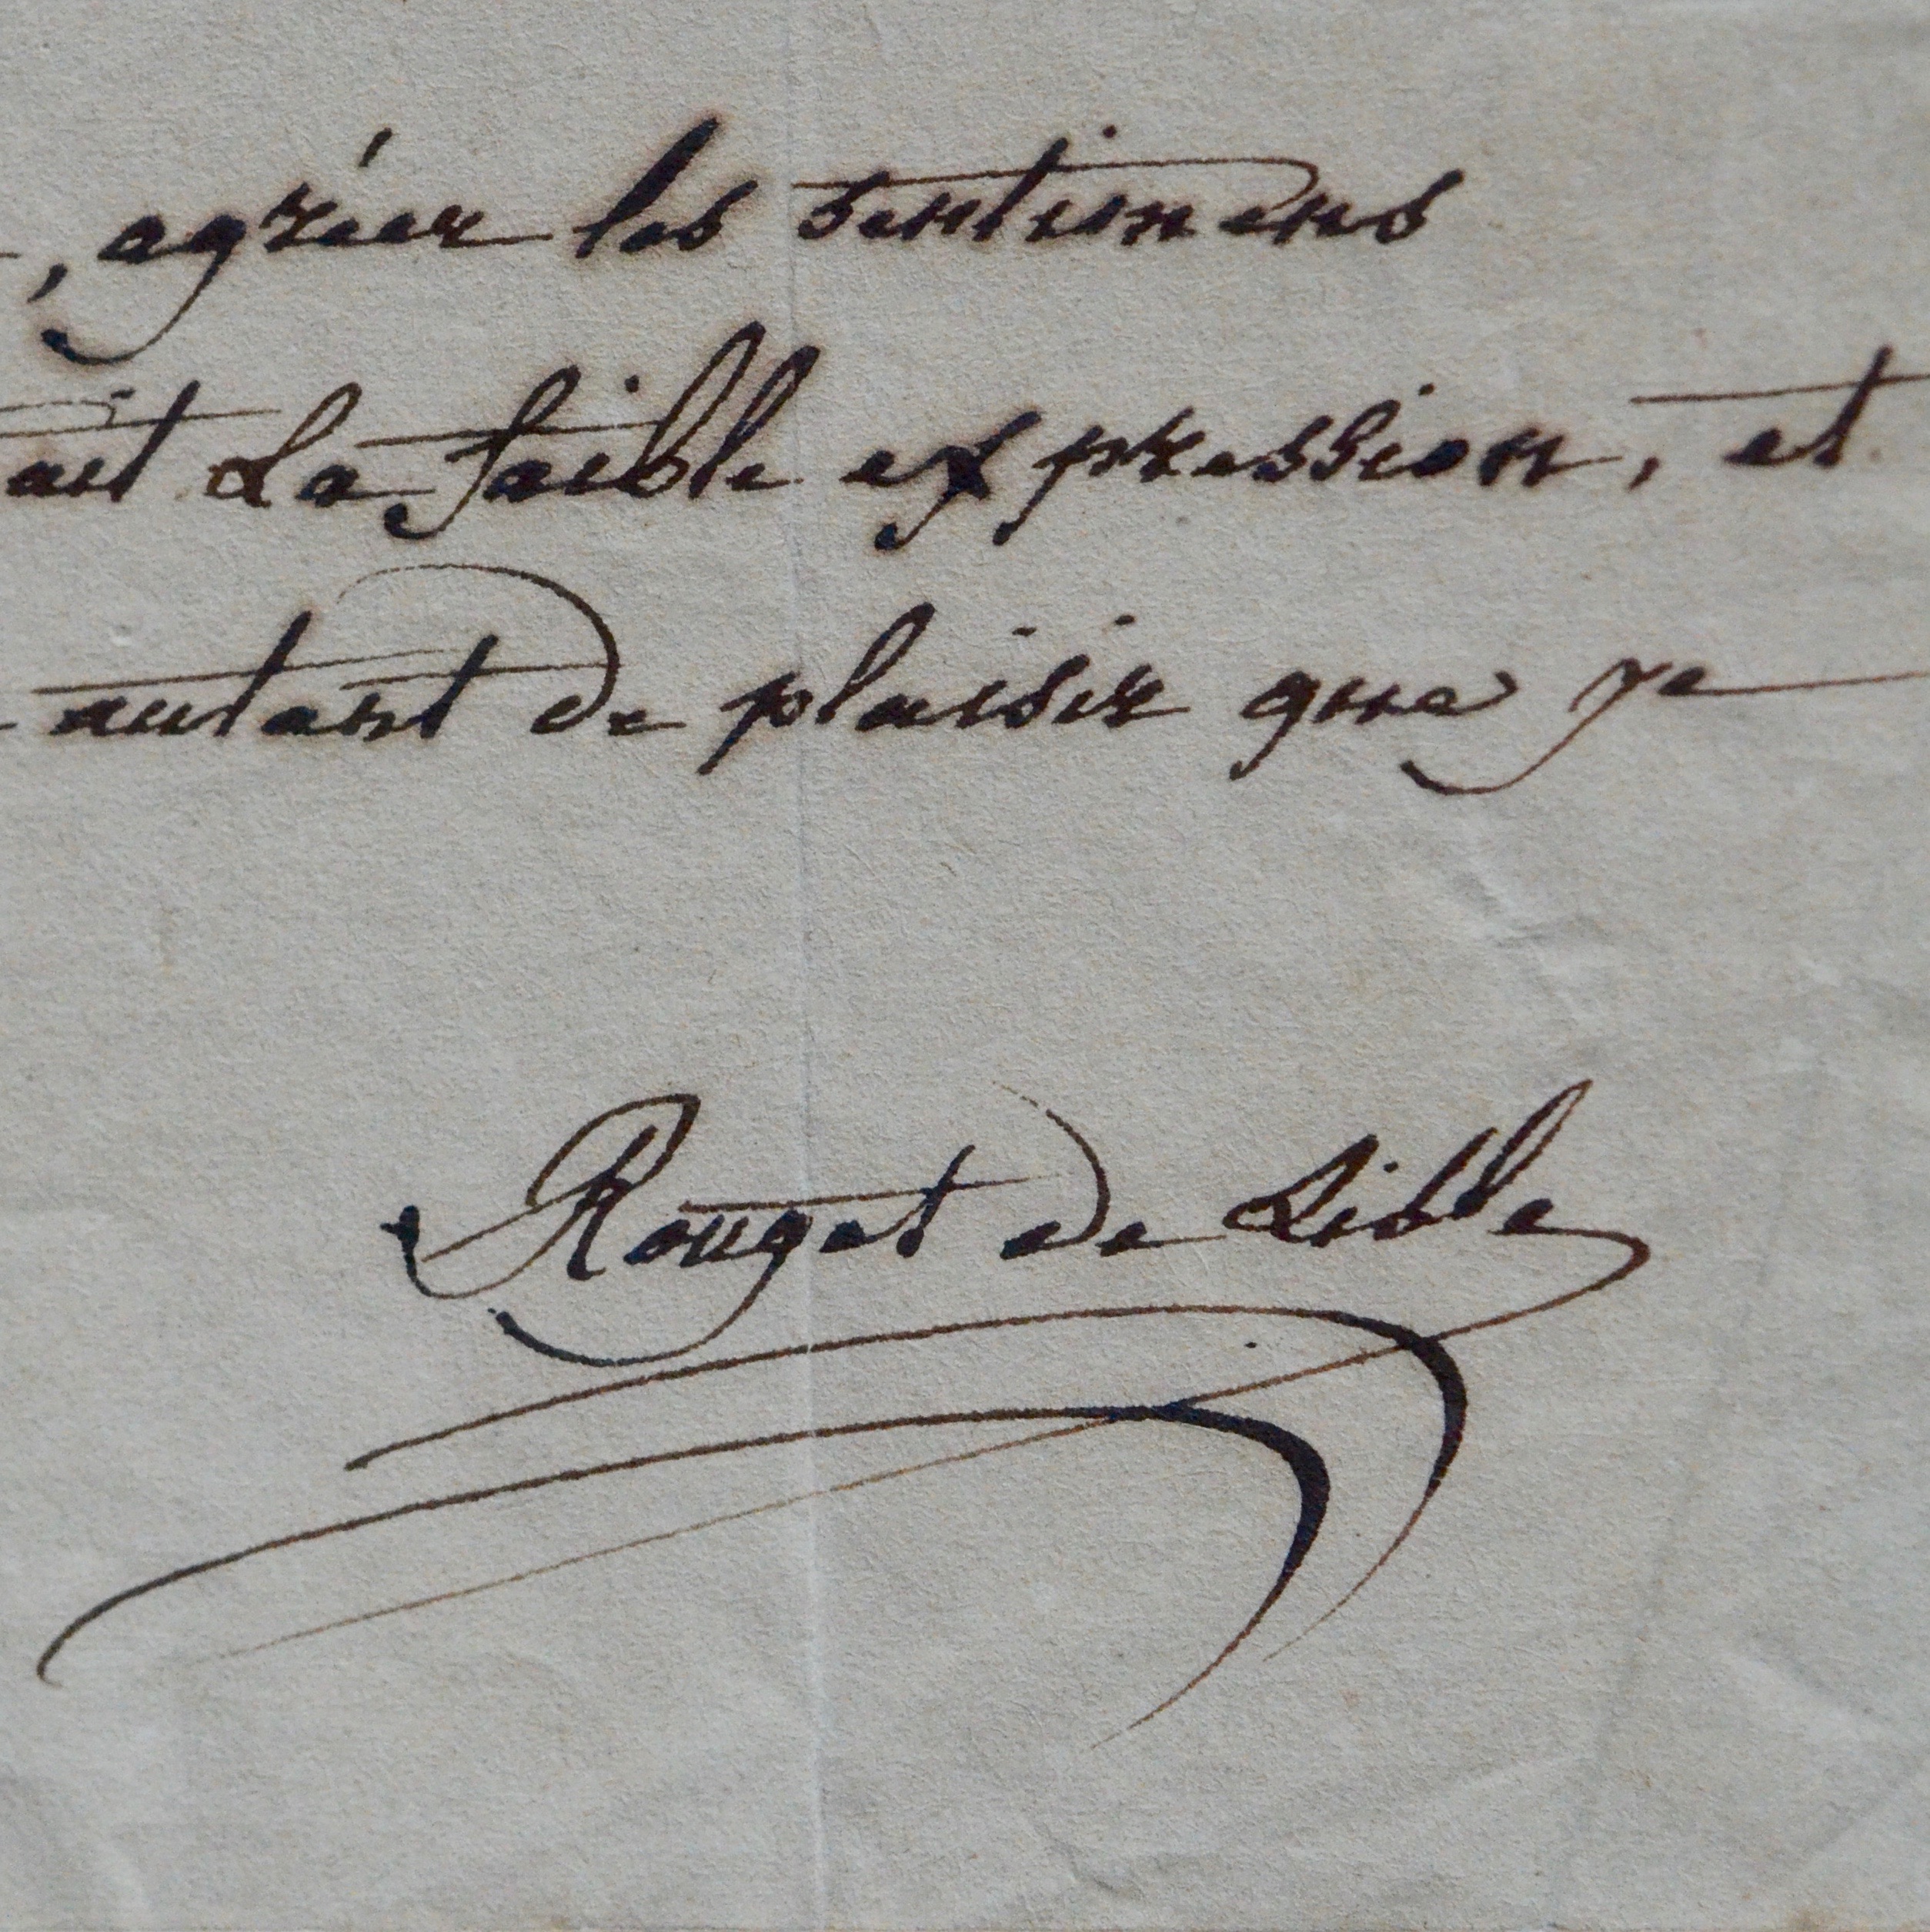 , agréer les sentimens
la faible expression, et
autant de plaisir que je
Rouget de Lisle